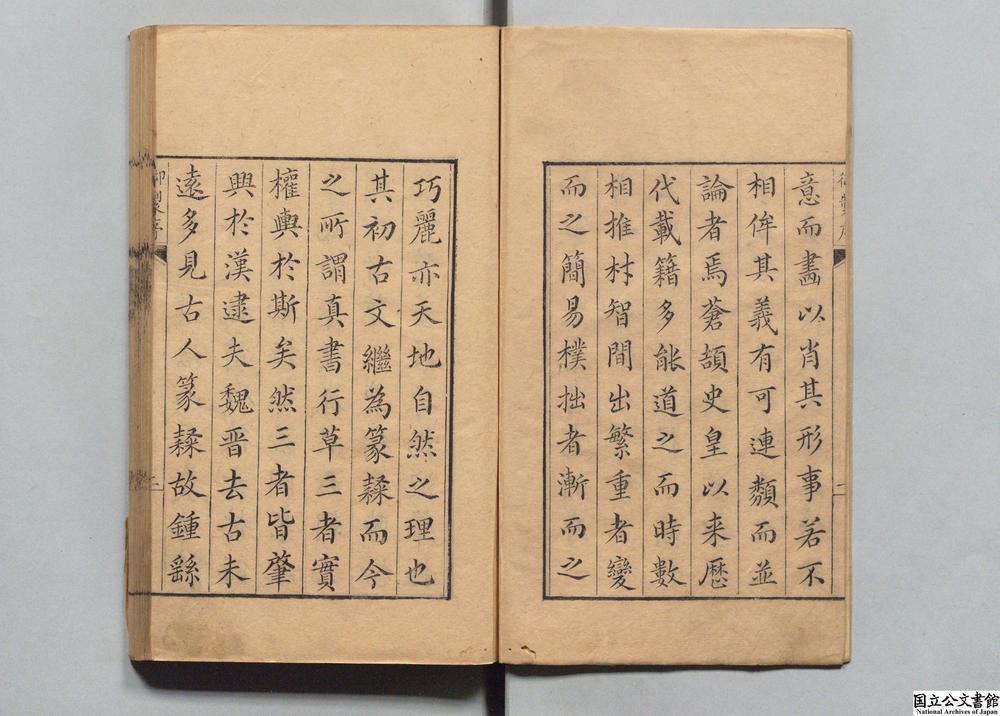 意而畵以肖其形事若不
相侔其義有可連類而並
論者焉蒼頡史皇以来歷
代載籍多能道之而時數
相推材智間出繁重者變
而之簡易樸拙者漸而之
巧麗亦天地自然之理也
其初古文繼為篆隸而今
之所謂真書行草三者實
權輿於斯矣然三者皆肇
興於漢逮夫魏晉去古未
遠多見古人篆隸故鍾繇
御製序
二
国立公文書館
National Archives of Japan